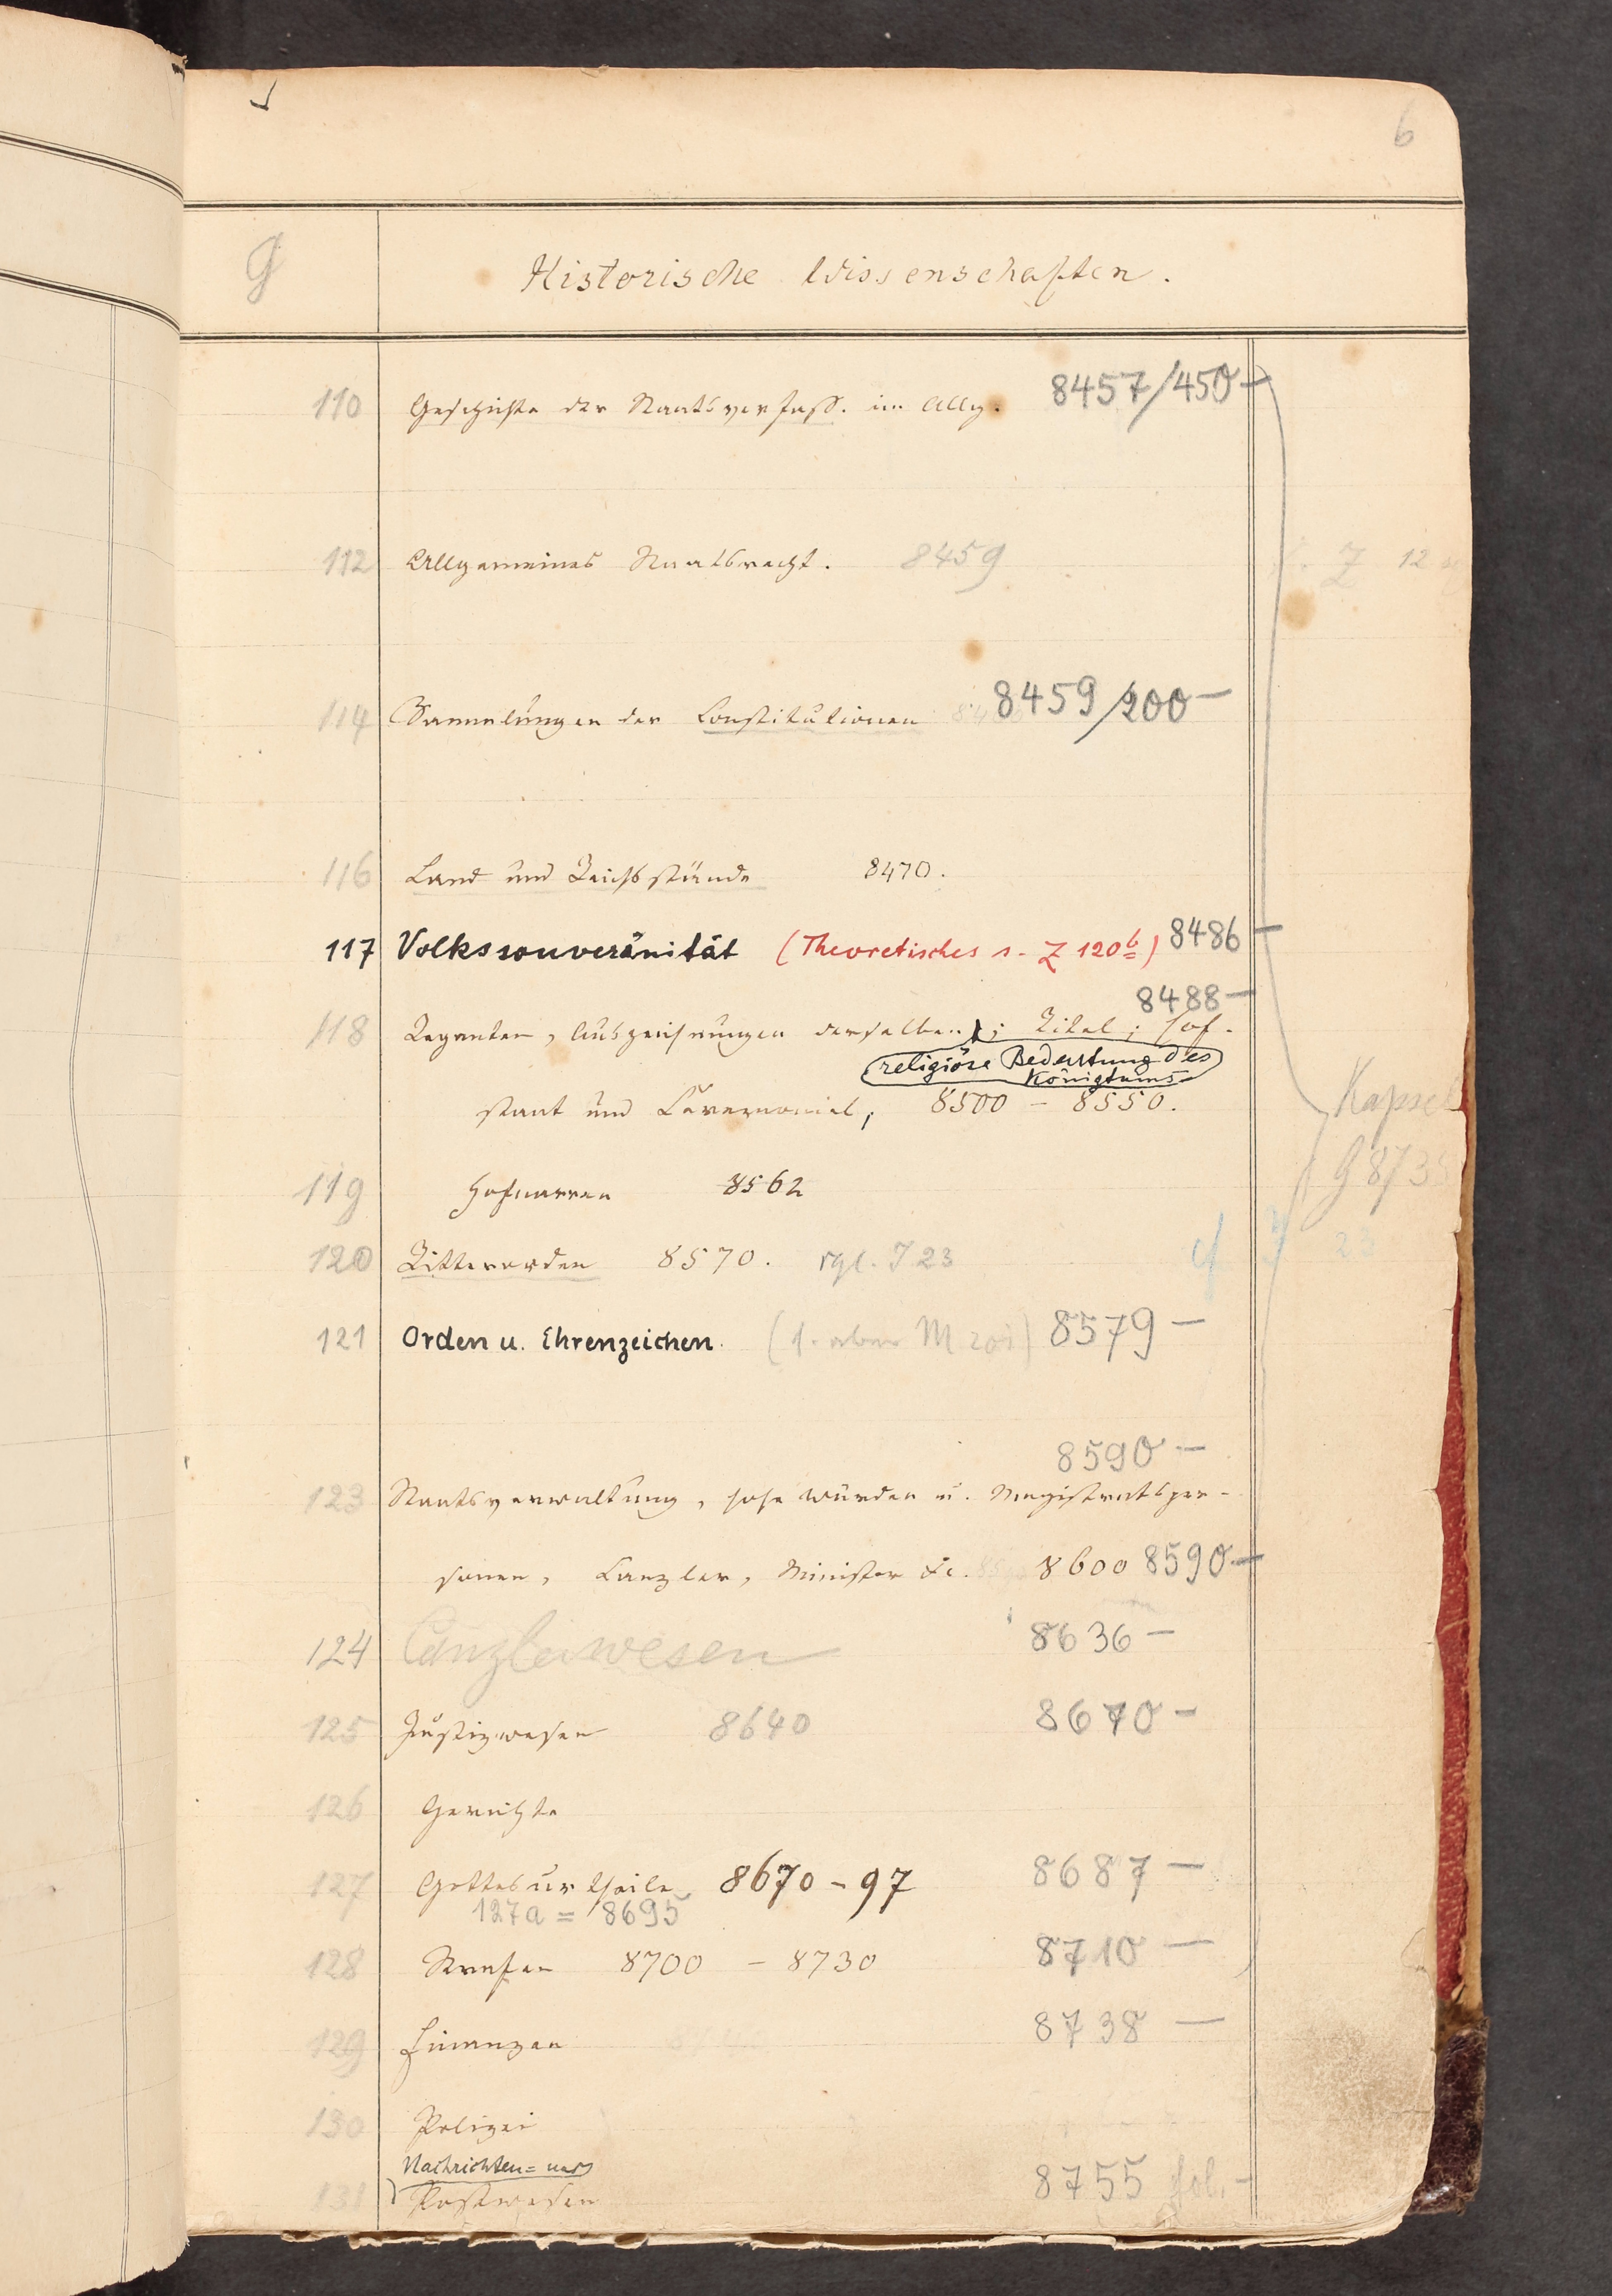 6
G
Historische Wissenschaften.
110 Geschichte der Staatsverfass. im Allg. 8457/450-
112 Allgemeines Staatsrecht. 8459
Z 12
114 Sammlungen der Constitutionen 8459/200-
116 Land und Reichsstände 8470.
117 Volkssouveränität (Theoretisches s. Z 120b) 8486-
8488-
118 Regenten, Auszeichnungen derselben; Titel; Hof-
religiöse Bedeutung des
Königtums
staat und Ceremoniel, 8500 - 8550.
Kapsel
G 873
119 Hofnarren 8562
23
120 Ritterorden 8570. vgl. J 23
121 Orden u. Ehrenzeichen. (s. aber M 201) 8579-
8590-
123 Staatsverwaltung, hohe Würden u. Magistratsper-
sonen, Canzler, Minister &c. 8600 8590-
124 Canzleiwesen 8636-
125 Justizwesen 8640 8670-
126 Gerichte
127 Gottesurtheile 8670-97 8687-
127a = 8695
128 Strafen 8700 - 8730 8710-
129 Finanzen 8738-
130 Polizei
Nachrichten= und
131 Postwesen 8755 fol.-